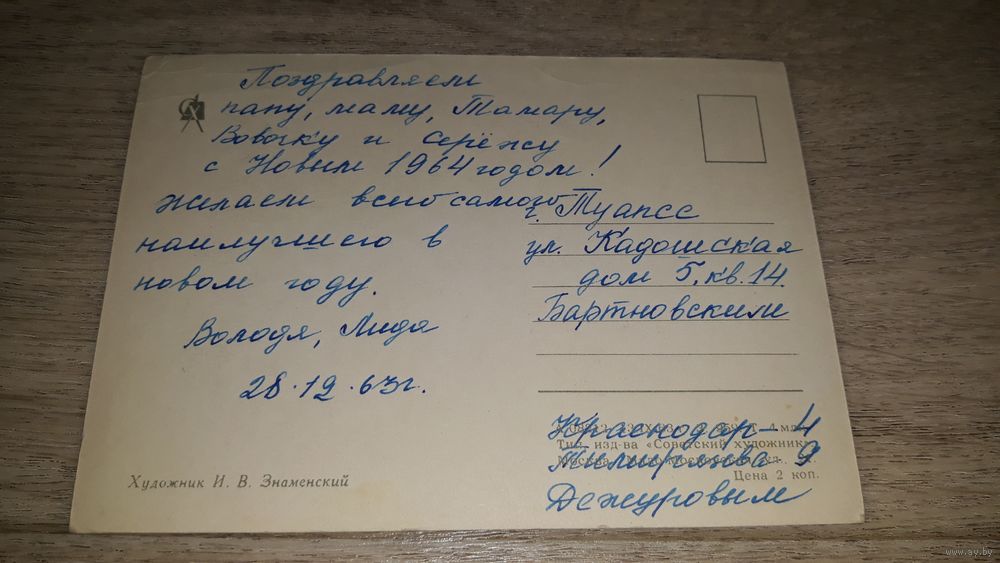 Поздравляем
папу, маму, Тамару,
Вовочку и Серёжу
с Новым 1964 годом!
желаем всего самого
наилучшего в
новом году.
Володя, Лида
28.12.63г.
Художник И. В. Знаменский
г. Туапсе
ул. Кадошская
дом 5, кв. 14.
Бартновским
Краснодар-4
Тип. изд-ва «Советский художник»
Москва
Тимирязева 9
Цена 2 коп.
Дежуровым
www.ay.by